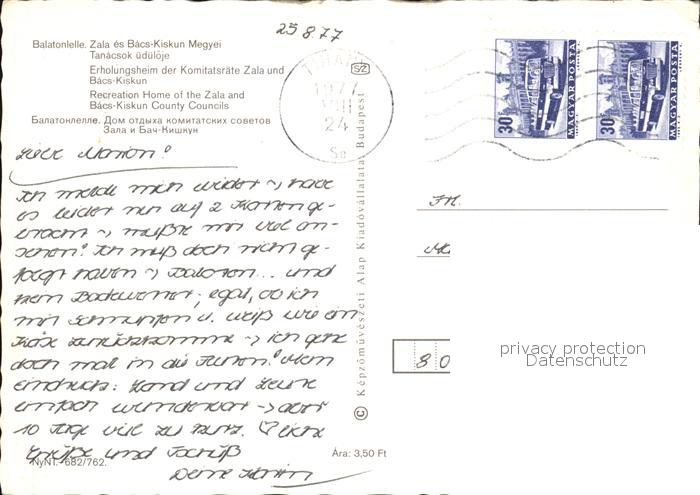 25 8 77
Balatonlelle. Zala és Bács-Kiskun Megyei
Tanácsok üdülője
Erholungsheim der Komitatsräte Zala und
Bács-Kiskun
Recreation Home of the Zala and
Bács-Kiskun County Councils
Балатонлелле. Дом отдыха комитатских советов
Зала и Бач-Кишкун
1977 VIII
24
30f
MAGYAR POSTA
30f
MAGYAR POSTA
Liebe Marion!
Ich melde mich wieder habe
es leider nur auf 2 Karten ge-
bracht mußte mir viel an-
sehen! Ich muß doch nicht ge-
sagt haben Balaton... und
kein Badewetter; egal, ob ich
mit Schnupfen u. weiß wie ein
Käse zurückkomme → ich gehe
doch mal in die Fluten! Mein
Eindruck: Land und Leute
einfach wunderbar → aber
10 Tage viel zu kurz. ♡liche
Grüße und
Deine
Fr.
80
privacy protection
Datenschutz
© Képzőművészeti Alap Kiadóvállalata, Budapest
Ára: 3,50 Ft
NyNT. 682/762.